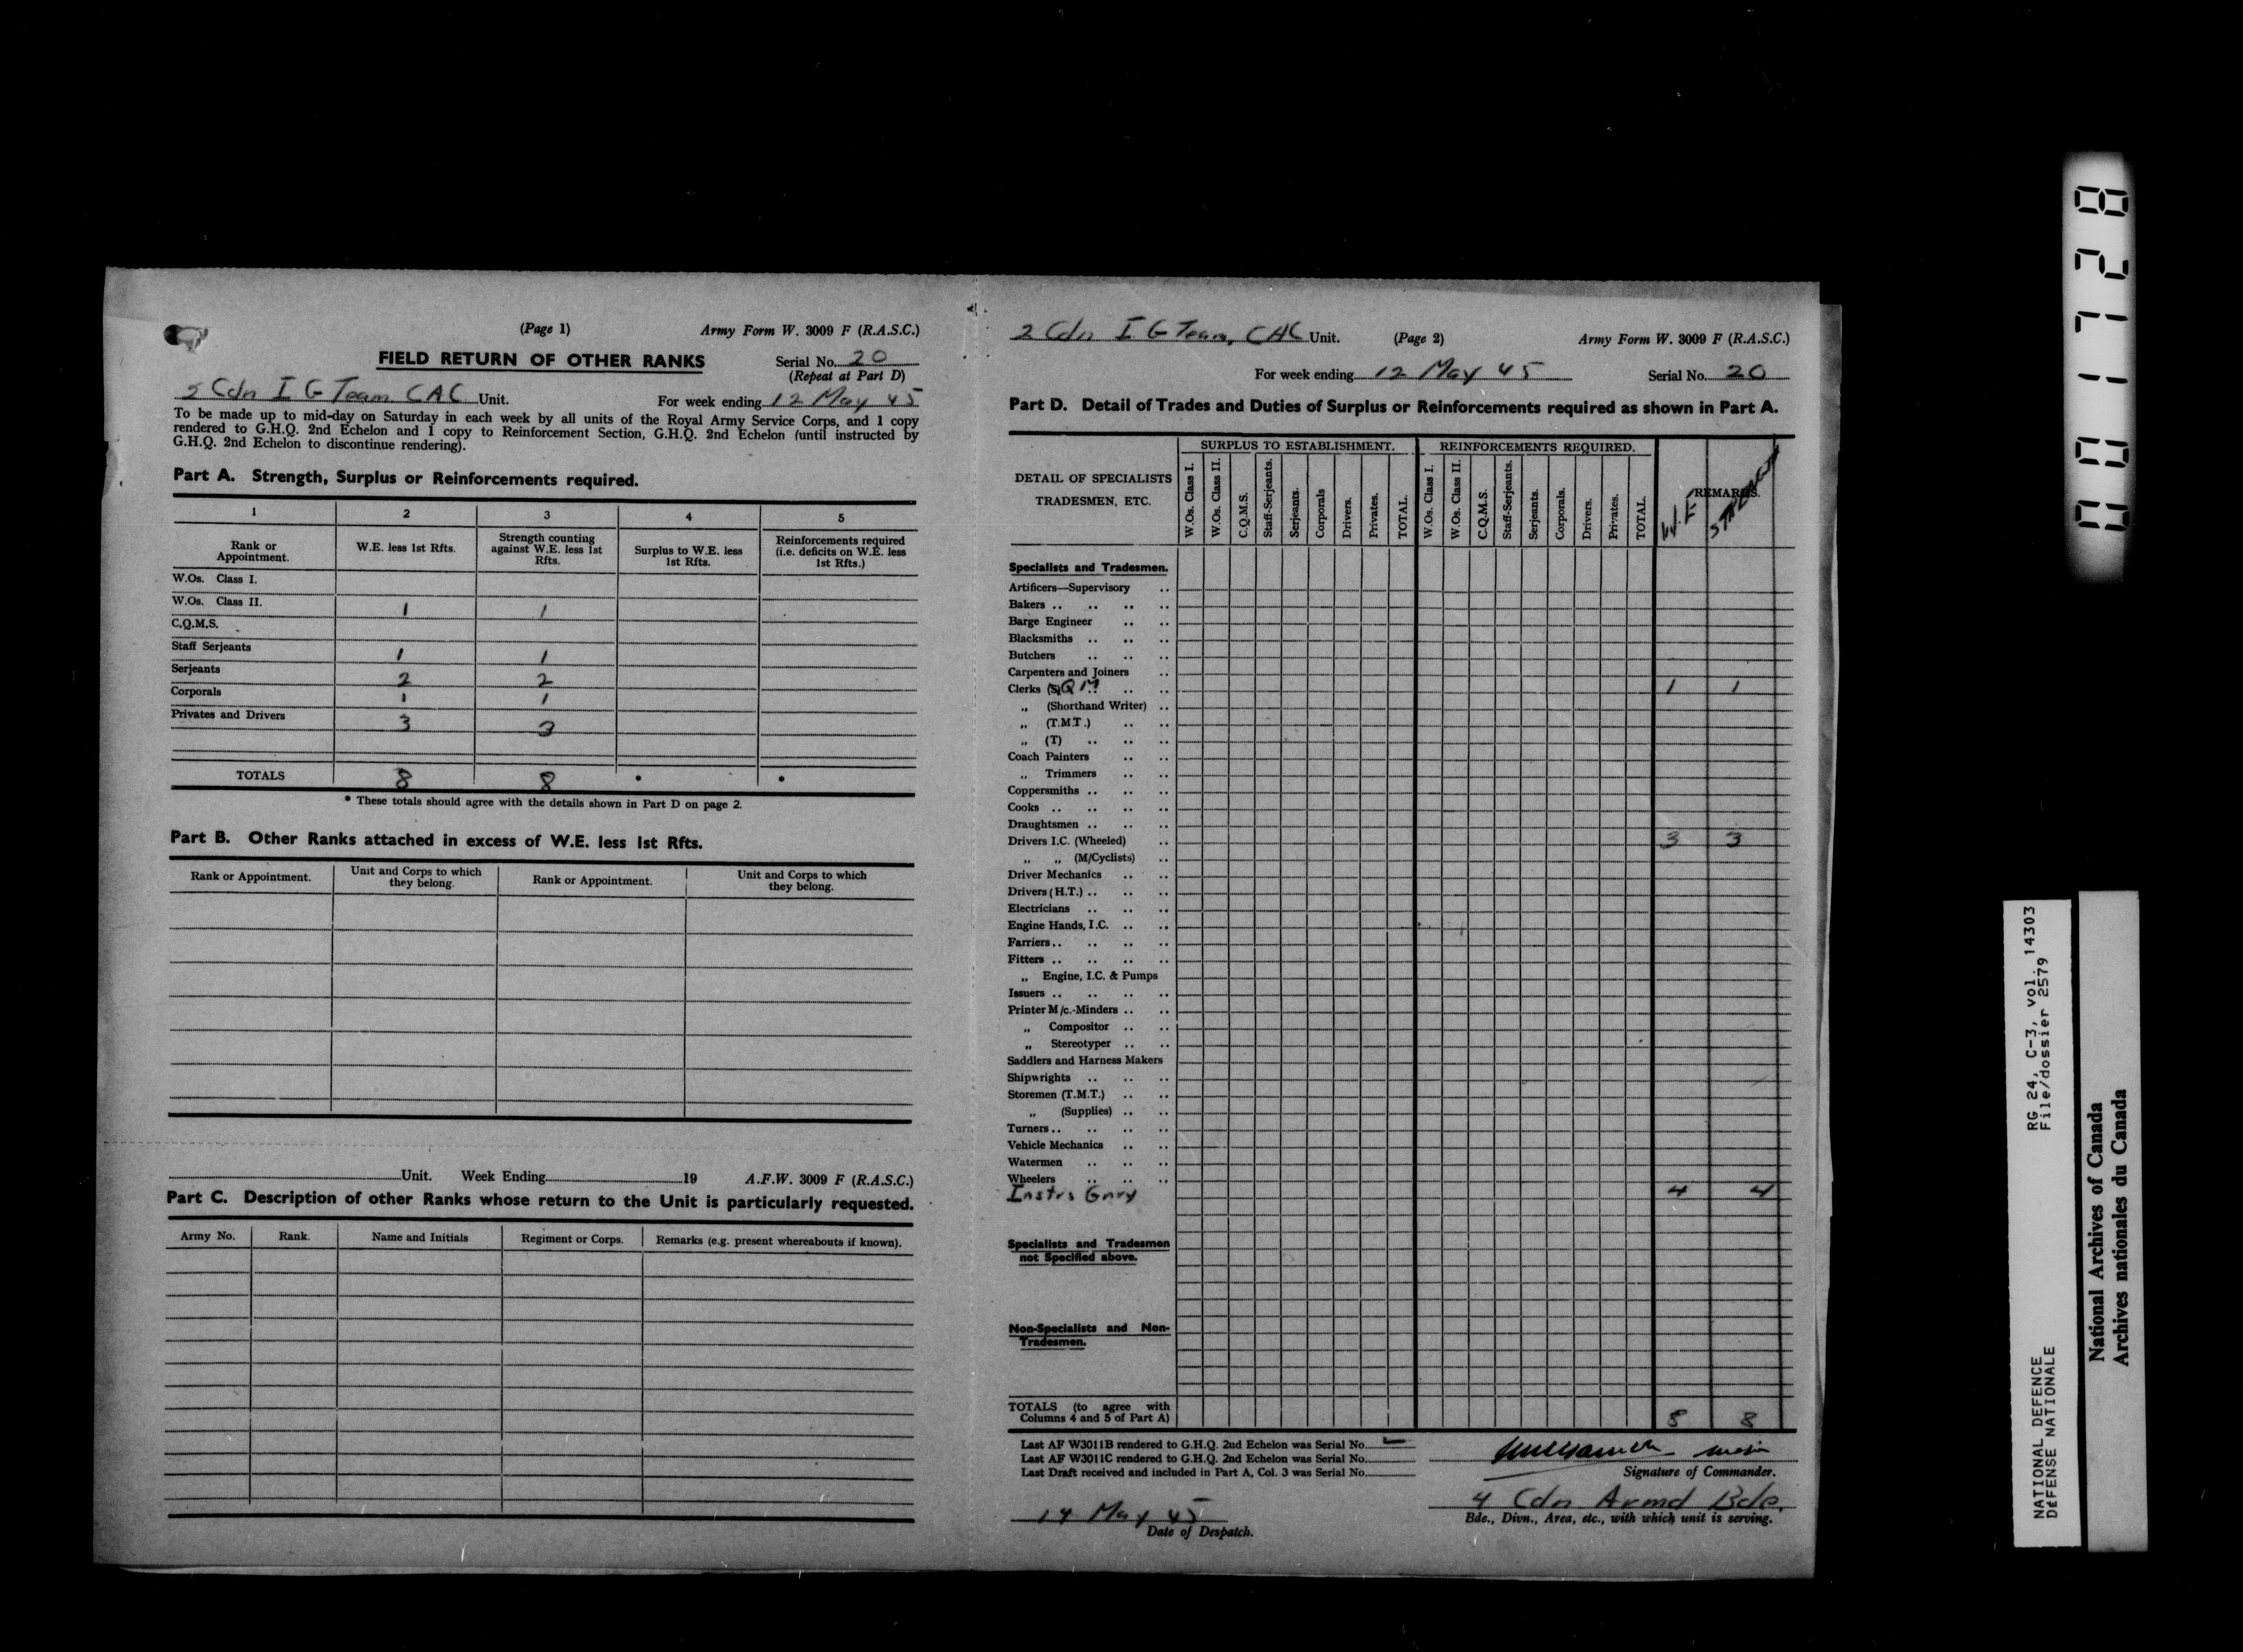 (Page 1) Army Form W. 3009 F (R.A.S.C.)
FIELD RETURN OF OTHER RANKS Serial No. 20
(Repeat at Part D)
2 Cdn I G Team CAC Unit. For week ending 12 May 45
To be made up to mid-day on Saturday in each week by all units of the Royal Army Service Corps, and 1 copy
rendered to G.H.Q. 2nd Echelon and 1 copy to Reinforcement Section, G.H.Q. 2nd Echelon (until instructed by
G.H.Q. 2nd Echelon to discontinue rendering).
Part A. Strength, Surplus or Reinforcements required.
1 2 3 4 5
Rank or Appointment. W.E. less 1st Rfts. Strength counting against W.E. less 1st Rfts. Surplus to W.E. less 1st Rfts. Reinforcements required (i.e. deficits on W.E. less 1st Rfts.)
W.Os. Class I.
W.Os. Class II. 1 1
C.Q.M.S.
Staff Serjeants 1 1
Serjeants 2 2
Corporals 1 1
Privates and Drivers 3 3
TOTALS 8 8 * *
* These totals should agree with the details shown in Part D on page 2.
Part B. Other Ranks attached in excess of W.E. less 1st Rfts.
Rank or Appointment. Unit and Corps to which they belong. Rank or Appointment. Unit and Corps to which they belong.
Unit. Week Ending 19 A.F.W. 3009 F (R.A.S.C.)
Part C. Description of other Ranks whose return to the Unit is particularly requested.
Army No. Rank. Name and Initials Regiment or Corps. Remarks (e.g. present whereabouts if known).
2 Cdn I G Team, CAC Unit. (Page 2) Army Form W. 3009 F (R.A.S.C.)
For week ending 12 May 45 Serial No. 20
Part D. Detail of Trades and Duties of Surplus or Reinforcements required as shown in Part A.
DETAIL OF SPECIALISTS TRADESMEN, ETC. SURPLUS TO ESTABLISHMENT. REINFORCEMENTS REQUIRED. REMARKS.
W.Os. Class I. W.Os. Class II. C.Q.M.S. Staff-Serjeants. Serjeants. Corporals Drivers. Privates. TOTAL. W.Os. Class I. W.Os. Class II. C.Q.M.S. Staff-Serjeants. Serjeants. Corporals. Drivers. Privates. TOTAL. W.E. STRENGTH
Specialists and Tradesmen.
Artificers—Supervisory
Bakers
Barge Engineer
Blacksmiths
Butchers
Carpenters and Joiners
Clerks (S) QM 1 1
„ (Shorthand Writer)
„ (T.M.T.)
„ (T)
Coach Painters
„ Trimmers
Coppersmiths
Cooks
Draughtsmen
Drivers I.C. (Wheeled) 3 3
„ „ (M/Cyclists)
Driver Mechanics
Drivers (H.T.)
Electricians
Engine Hands, I.C.
Farriers
Fitters
„ Engine, I.C. & Pumps
Issuers
Printer M/c.-Minders
„ Compositor
„ Stereotyper
Saddlers and Harness Makers
Shipwrights
Storemen (T.M.T.)
„ (Supplies)
Turners
Vehicle Mechanics
Watermen
Wheelers
Instrs Gnry 4 4
Specialists and Tradesmen
not Specified above.
Non-Specialists and Non-
Tradesmen.
TOTALS (to agree with
Columns 4 and 5 of Part A) 8 8
Last AF W3011B rendered to G.H.Q. 2nd Echelon was Serial No.
Last AF W3011C rendered to G.H.Q. 2nd Echelon was Serial No.
Last Draft received and included in Part A, Col. 3 was Serial No.
Major
Signature of Commander.
4 Cdn Armd Bde.
Bde., Divn., Area, etc., with which unit is serving.
14 May 45
Date of Despatch.
001728
RG 24, C-3, vol. 14303
File/dossier 2579
NATIONAL DEFENCE
DÉFENSE NATIONALE
National Archives of Canada
Archives nationales du Canada